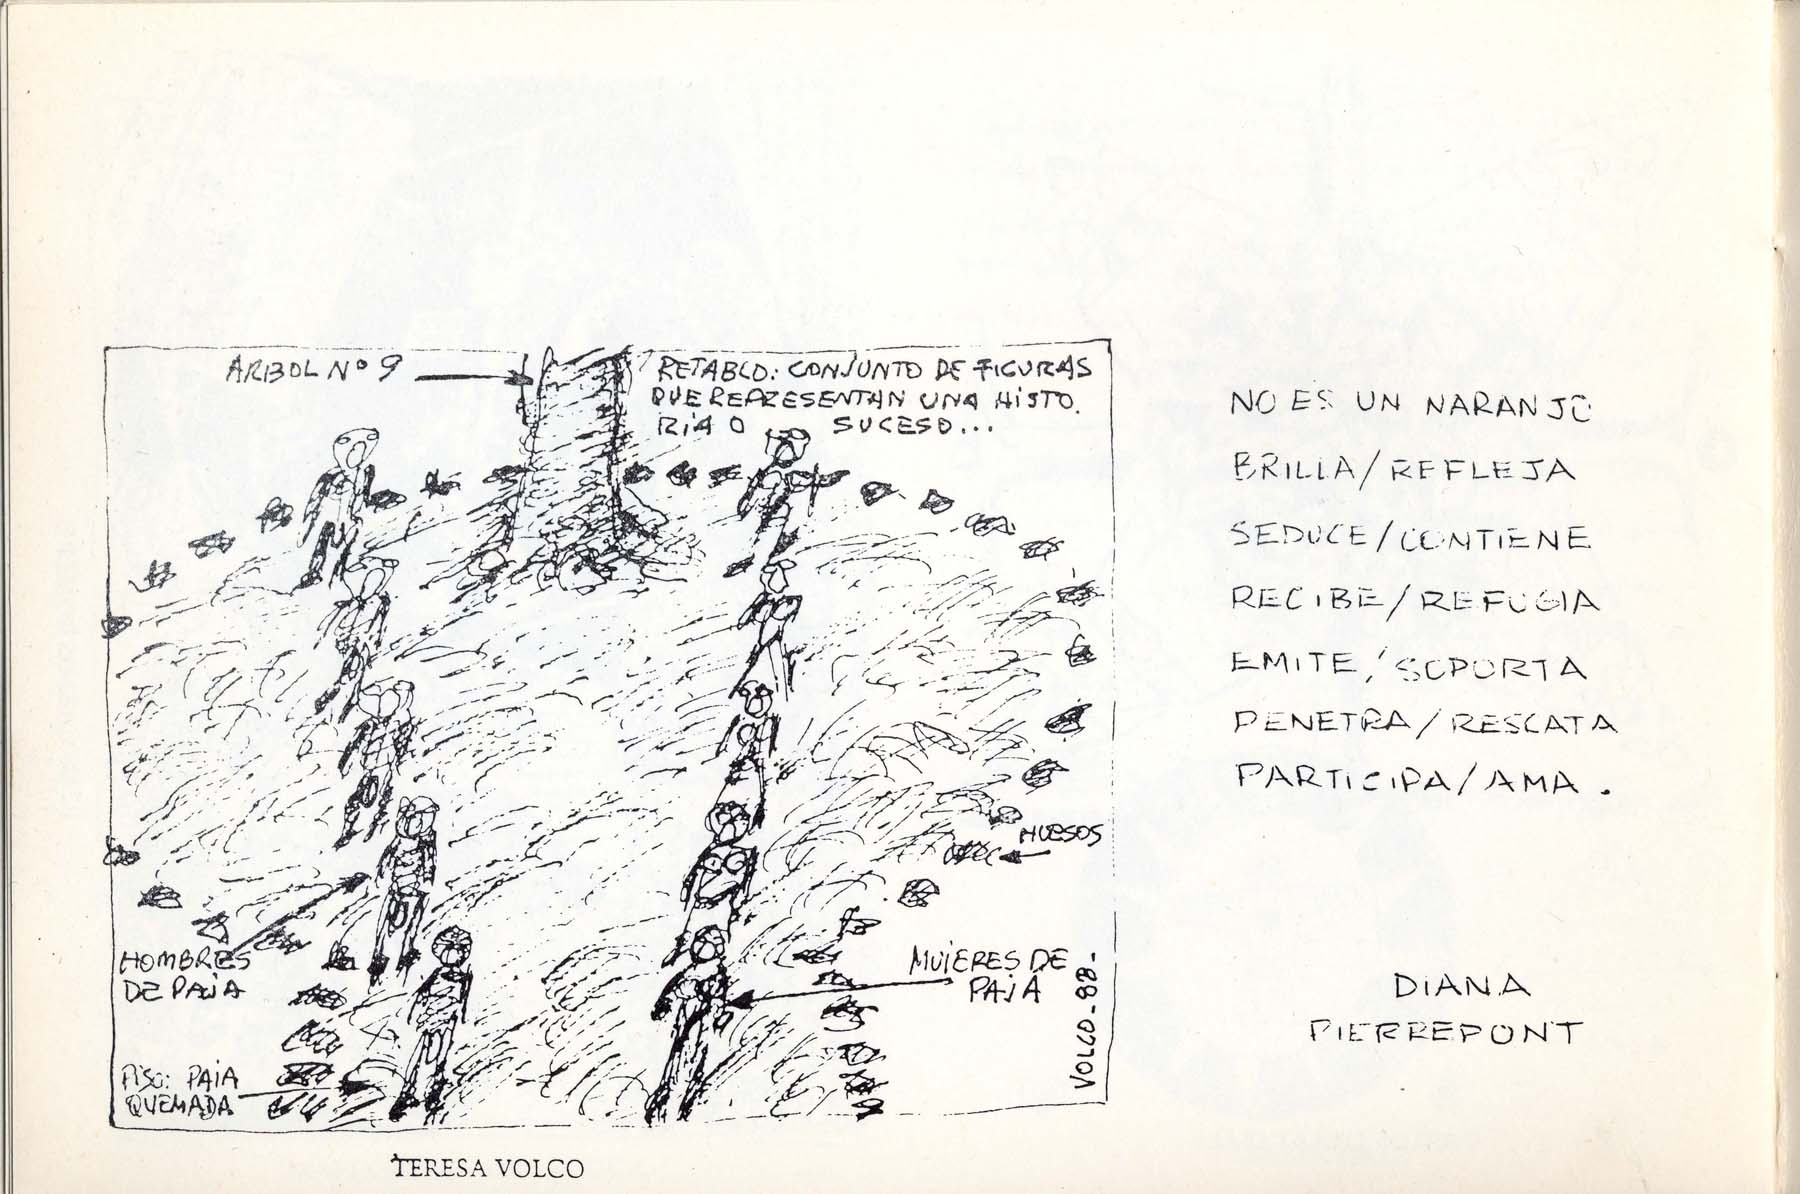 ARBOL Nº 9
RETABLO: CONJUNTO DE FIGURAS
QUE REPRESENTAN UNA HISTO.
RIA O SUCESO...
HUESOS
HOMBRES
DE PAJA
MUJERES DE
PAJA
PISO: PAJA
QUEMADA
VOLCO-88-
TERESA VOLCO
NO ES UN NARANJO
BRILLA/REFLEJA
SEDUCE/CONTIENE
RECIBE/REFUGIA
EMITE/SOPORTA
PENETRA/RESCATA
PARTICIPA/AMA.
DIANA
PIERREPONT